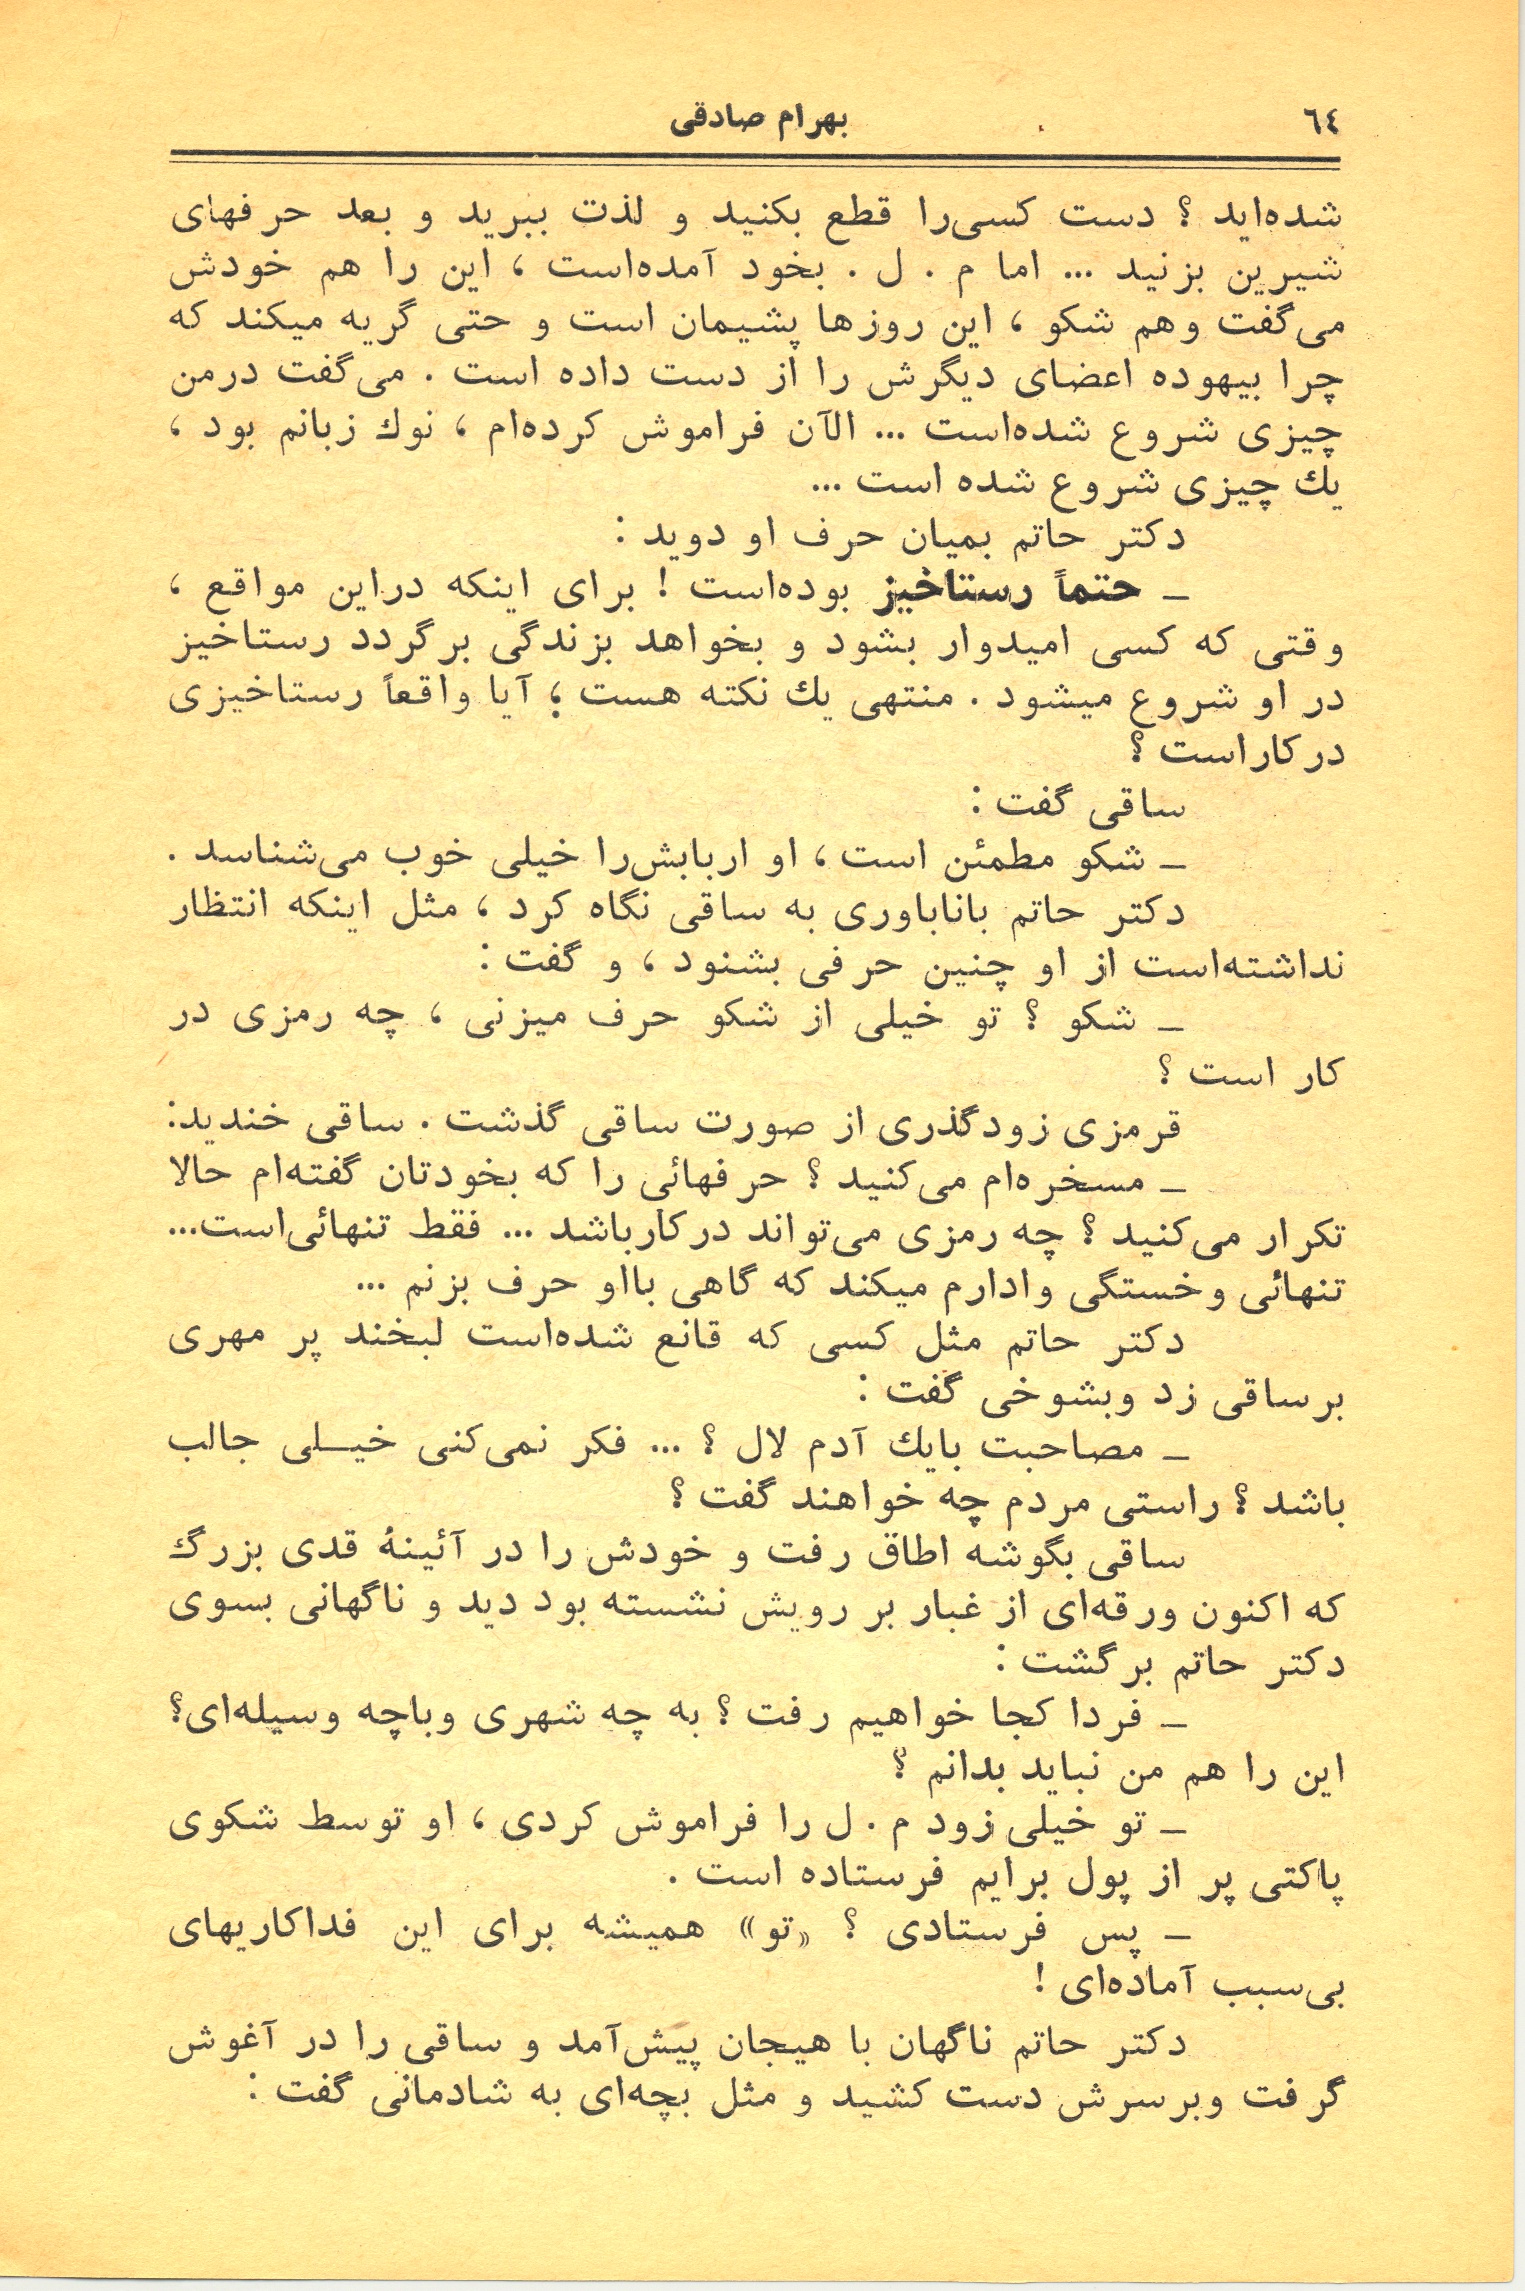 ٦٤
بهرام صادقی
شده‌اید ؟ دست کسی‌را قطع بکنید و لذت ببرید و بعد حرفهای
شیرین بزنید ... اما م . ل . بخود آمده‌است ، این را هم خودش
می‌گفت وهم شکو ، این روزها پشیمان است و حتی گریه میکند که
چرا بیهوده اعضای دیگرش را از دست داده است . می‌گفت درمن
چیزی شروع شده‌است ... الآن فراموش کرده‌ام ، نوك زبانم بود ،
یك چیزی شروع شده است ...
دکتر حاتم بمیان حرف او دوید :
ـ حتماً رستاخیز بوده‌است ! برای اینکه دراین مواقع ،
وقتی که کسی امیدوار بشود و بخواهد بزندگی برگردد رستاخیز
در او شروع میشود . منتهی یك نکته هست ؛ آیا واقعاً رستاخیزی
درکاراست ؟
ساقی گفت :
ـ شکو مطمئن است ، او اربابش‌را خیلی خوب می‌شناسد .
دکتر حاتم باناباوری به ساقی نگاه کرد ، مثل اینکه انتظار
نداشته‌است از او چنین حرفی بشنود ، و گفت :
ـ شکو ؟ تو خیلی از شکو حرف میزنی ، چه رمزی در
کار است ؟
قرمزی زودگذری از صورت ساقی گذشت . ساقی خندید:
ـ مسخره‌ام می‌کنید ؟ حرفهائی را که بخودتان گفته‌ام حالا
تکرار می‌کنید ؟ چه رمزی می‌تواند درکارباشد ... فقط تنهائی‌است...
تنهائی وخستگی وادارم میکند که گاهی بااو حرف بزنم ...
دکتر حاتم مثل کسی که قانع شده‌است لبخند پر مهری
برساقی زد وبشوخی گفت :
ـ مصاحبت بایك آدم لال ؟ ... فکر نمی‌کنی خیـلی جالب
باشد ؟ راستی مردم چه خواهند گفت ؟
ساقی بگوشه اطاق رفت و خودش را در آئینهٔ قدی بزرگ
که اکنون ورقه‌ای از غبار بر رویش نشسته بود دید و ناگهانی بسوی
دکتر حاتم برگشت :
ـ فردا کجا خواهیم رفت ؟ به چه شهری وباچه وسیله‌ای؟
این را هم من نباید بدانم ؟
ـ تو خیلی زود م . ل را فراموش کردی ، او توسط شکوی
پاکتی پر از پول برایم فرستاده است .
ـ پس فرستادی ؟ «تو» همیشه برای این فداکاریهای
بی‌سبب آماده‌ای !
دکتر حاتم ناگهان با هیجان پیش‌آمد و ساقی را در آغوش
گرفت وبرسرش دست کشید و مثل بچه‌ای به شادمانی گفت :